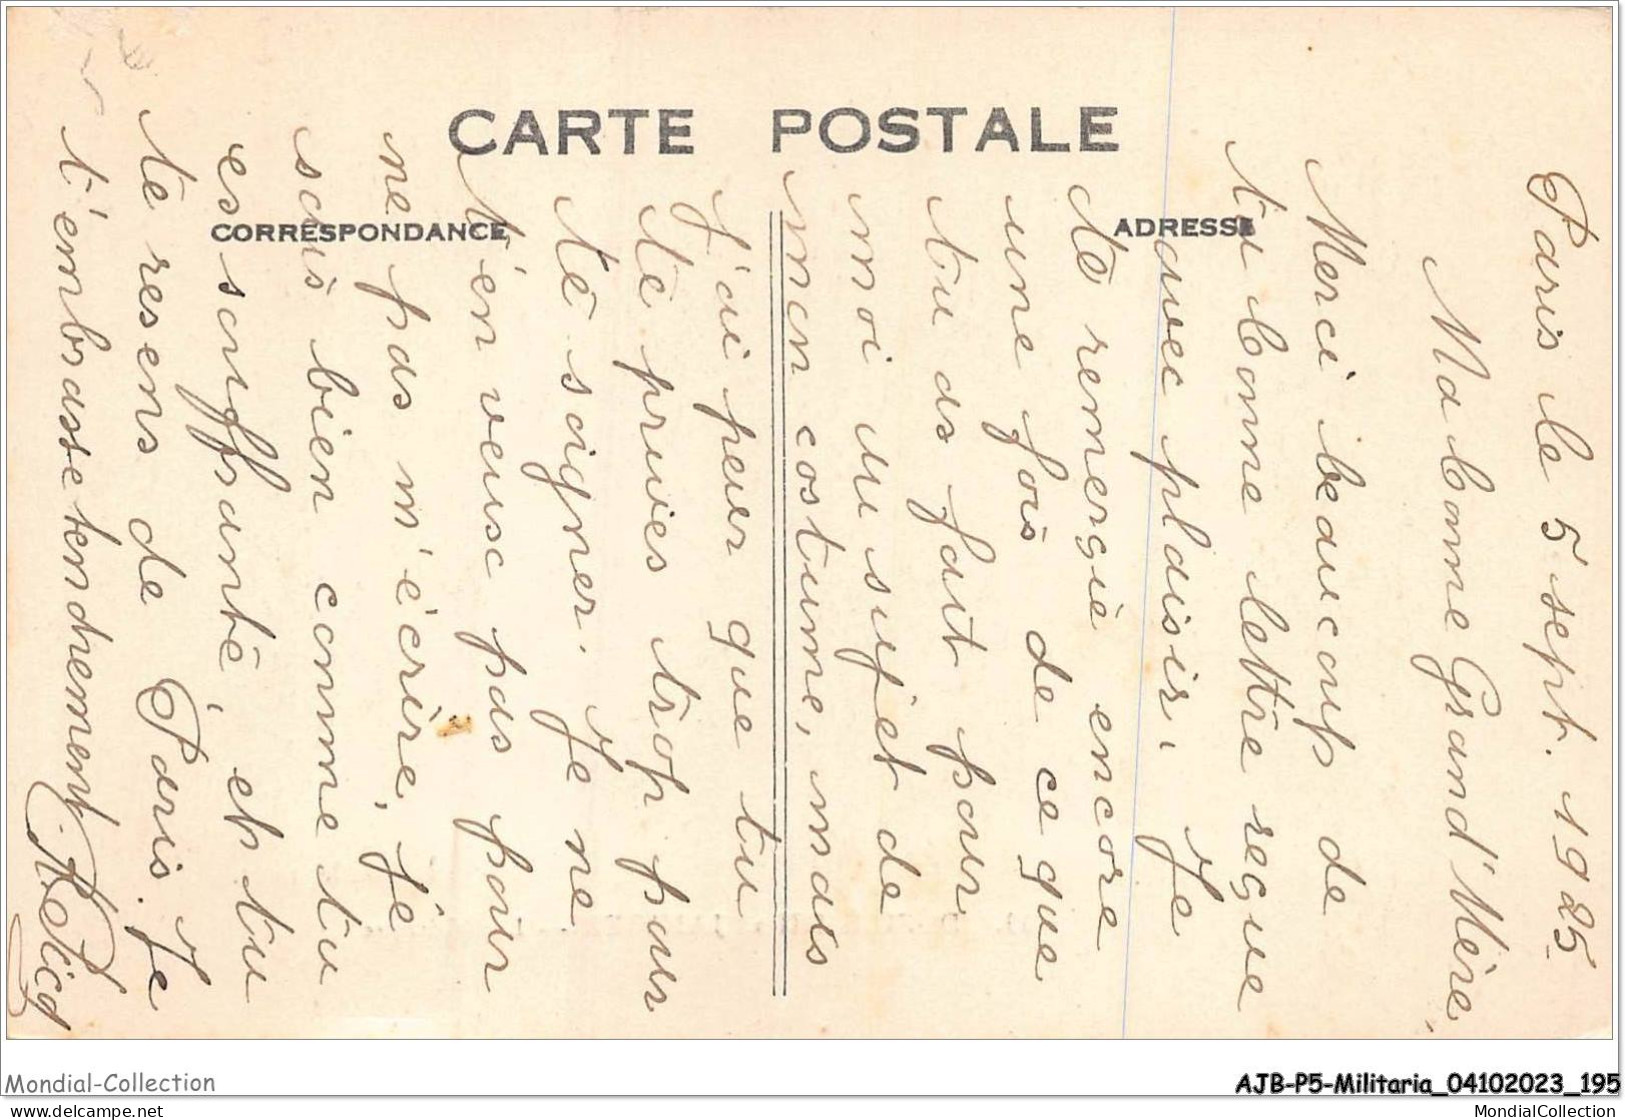 CARTE POSTALE
CORRESPONDANCE
ADRESSE
Paris le 5 sept. 1925
Ma bonne Grand'Mère,
Merci beaucoup de
ta bonne lettre reçue
avec plaisir. Je
te remercie encore
une fois de ce que
tu as fait pour
moi au sujet de
mon costume, mais
j'ai peur que tu
te prives trop pour
te soigner. Je ne
t'en veux pas pour
ne pas m'écrire, je
sais bien comme tu
es souffrante, et tu
te resens de Paris. Je
t'embrasse tendrement.
Mondial-Collection
AJB-P5-Militaria_04102023_195
https://www.delcampe.net
MondialCollection